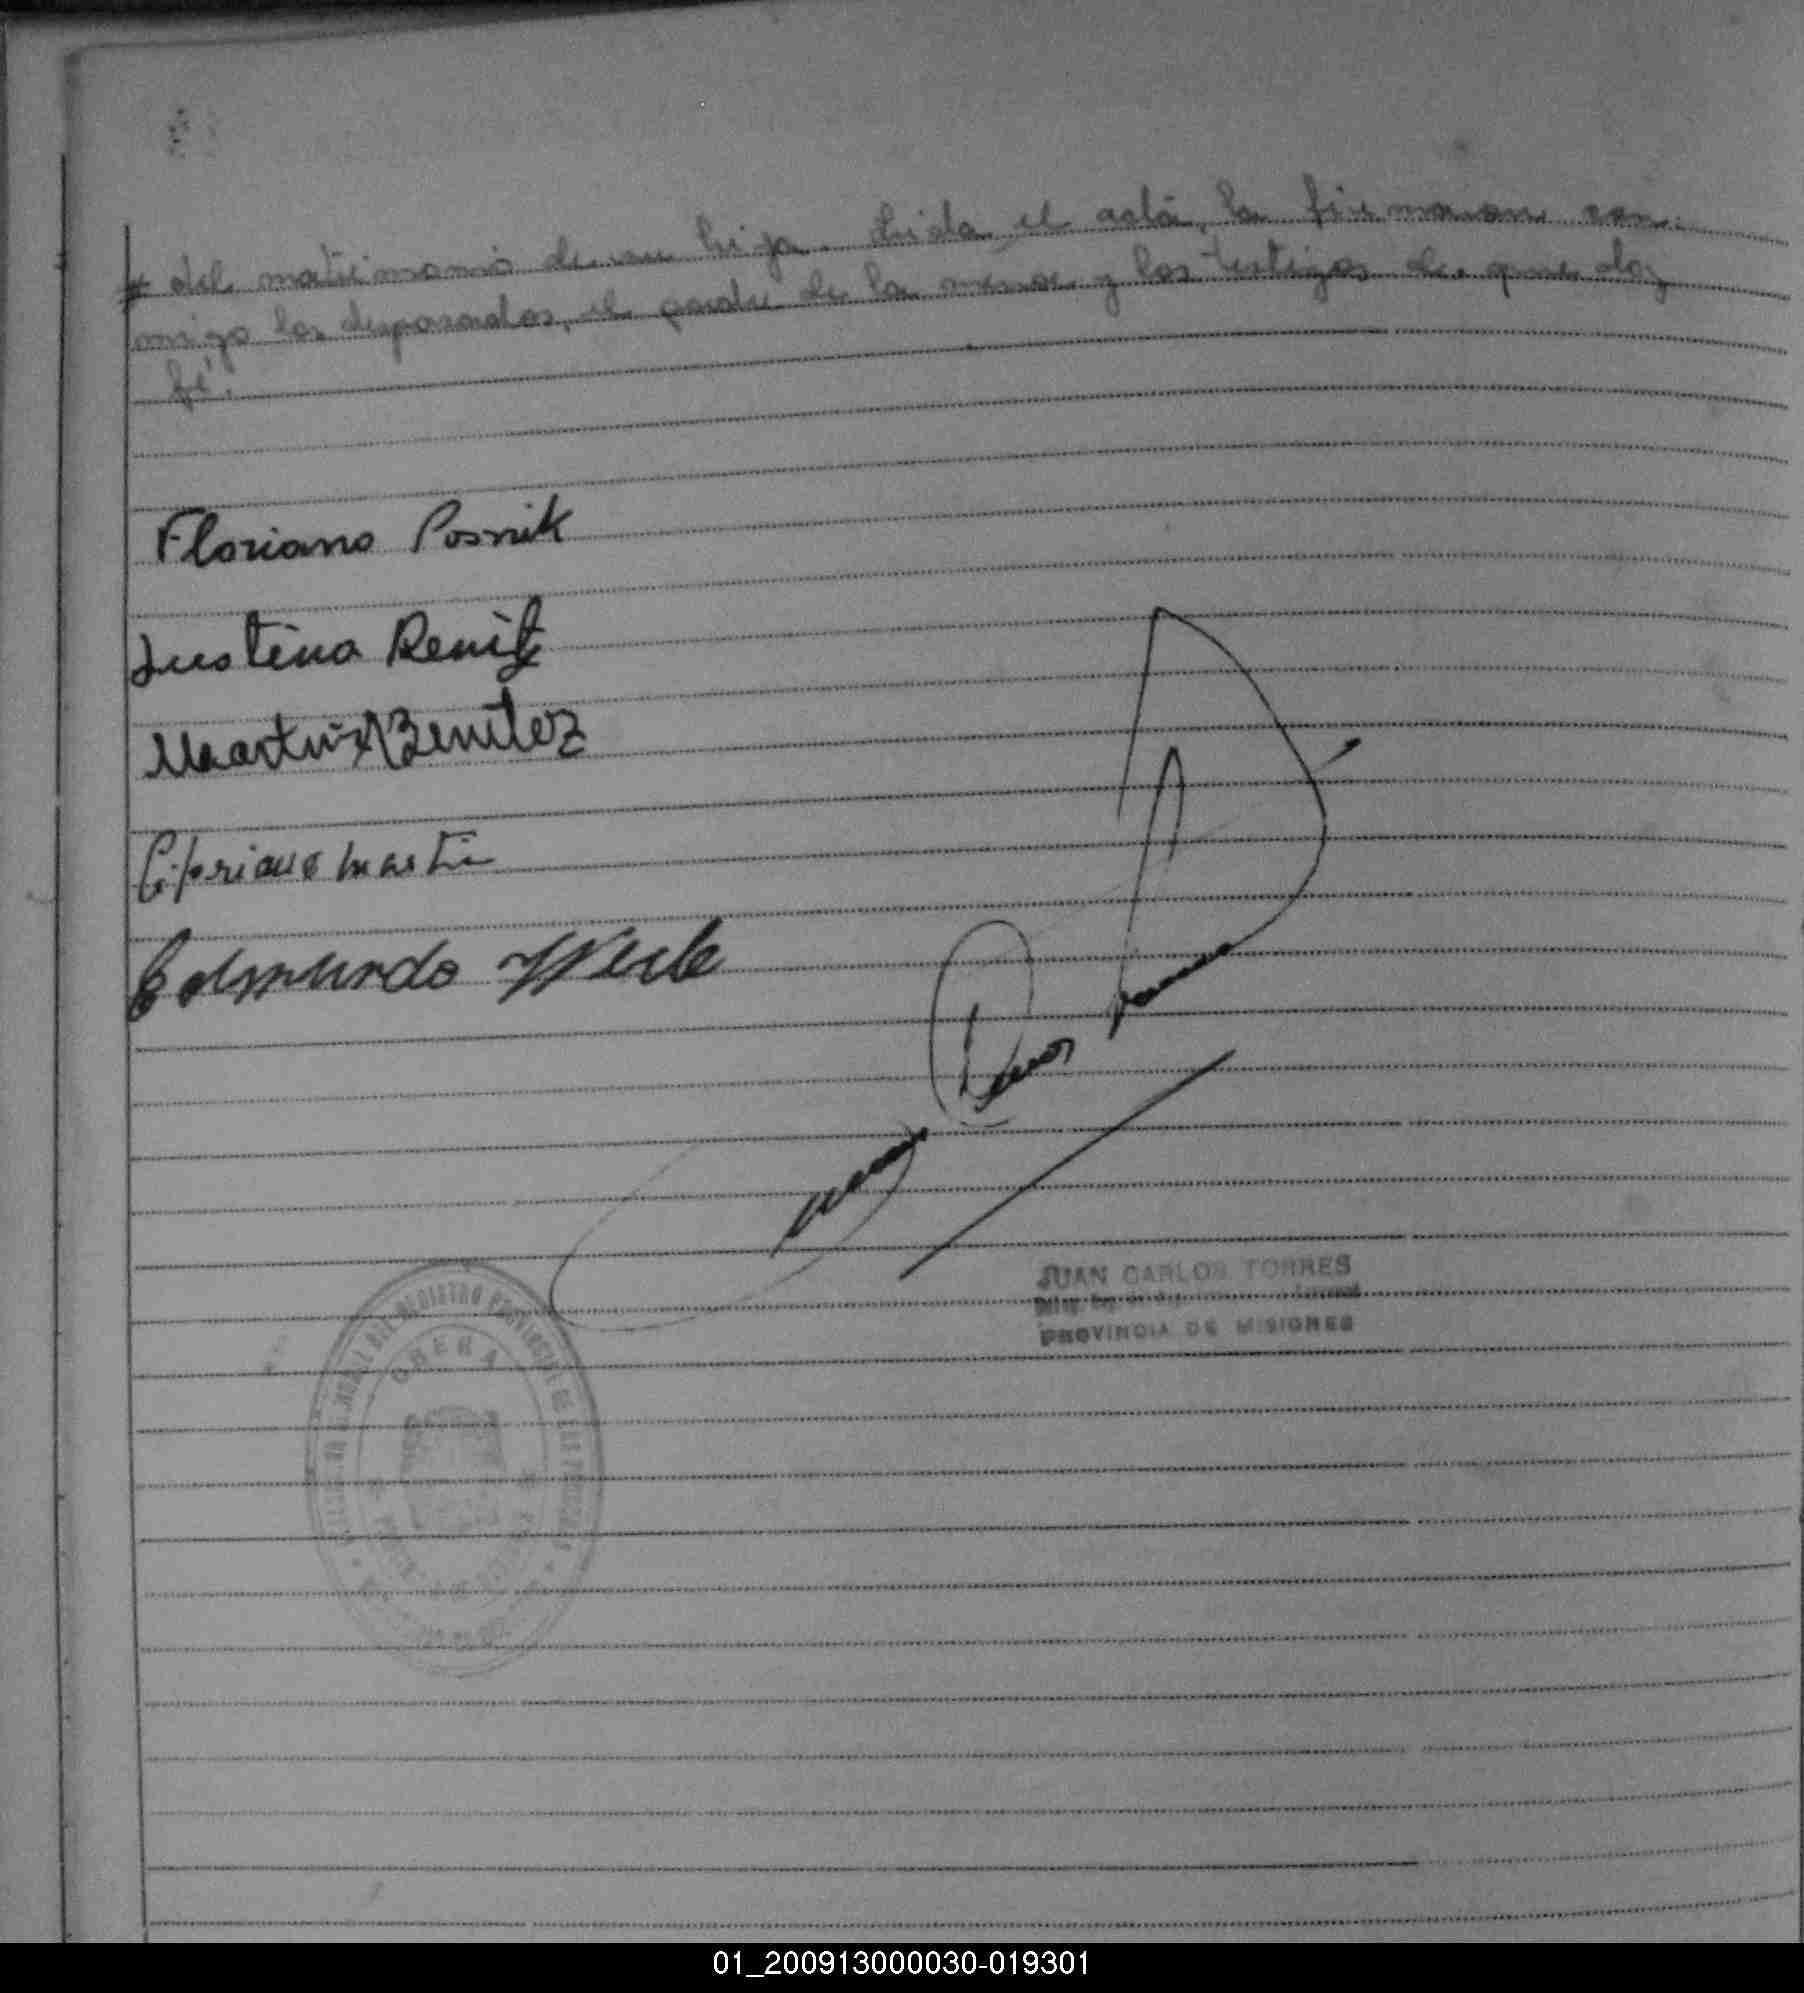 # del matrimonio de su hija. Leida el acta, la firmaron con-
migo los desposados, el padre de la menor y los testigos de que doy
fé.
Floriano Posnik
Justina Benitz
Martin Benitez
Cipriano Martin
Edmundo Werle
JUAN CARLOS TORRES
PROVINCIA DE MISIONES
REGISTRO PROVINCIAL DE LAS PERSONAS
OBERA
01_200913000030-019301